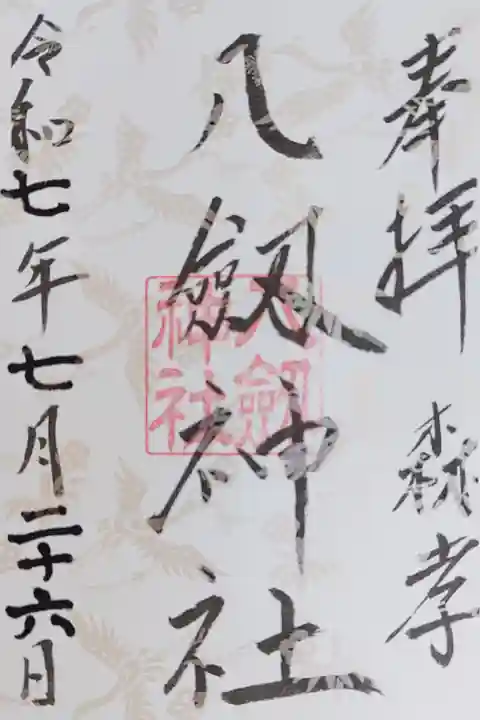 奉拝 森孝
八劔神社
八劔
神社
令和七年七月二十六日